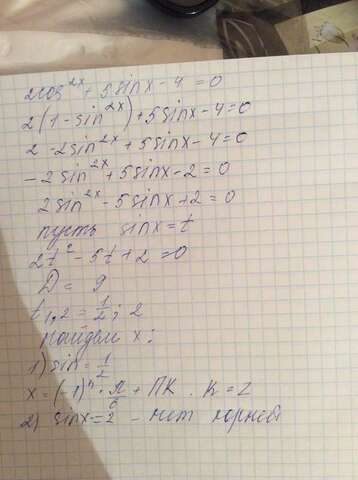 2cos²ˣ + 5sinx - 4 = 0
2(1 - sin²ˣ) + 5sinx - 4 = 0
2 - 2sin²ˣ + 5sinx - 4 = 0
-2sin²ˣ + 5sinx - 2 = 0
2sin²ˣ - 5sinx + 2 = 0
пусть sinx = t
2t² - 5t + 2 = 0
D = 9
t₁,₂ = 1/2; 2
найдем x:
1) sin = 1/2
x = (-1)ⁿ · П/6 + ПК. К = Z
2) sinx = 2 - нет корней